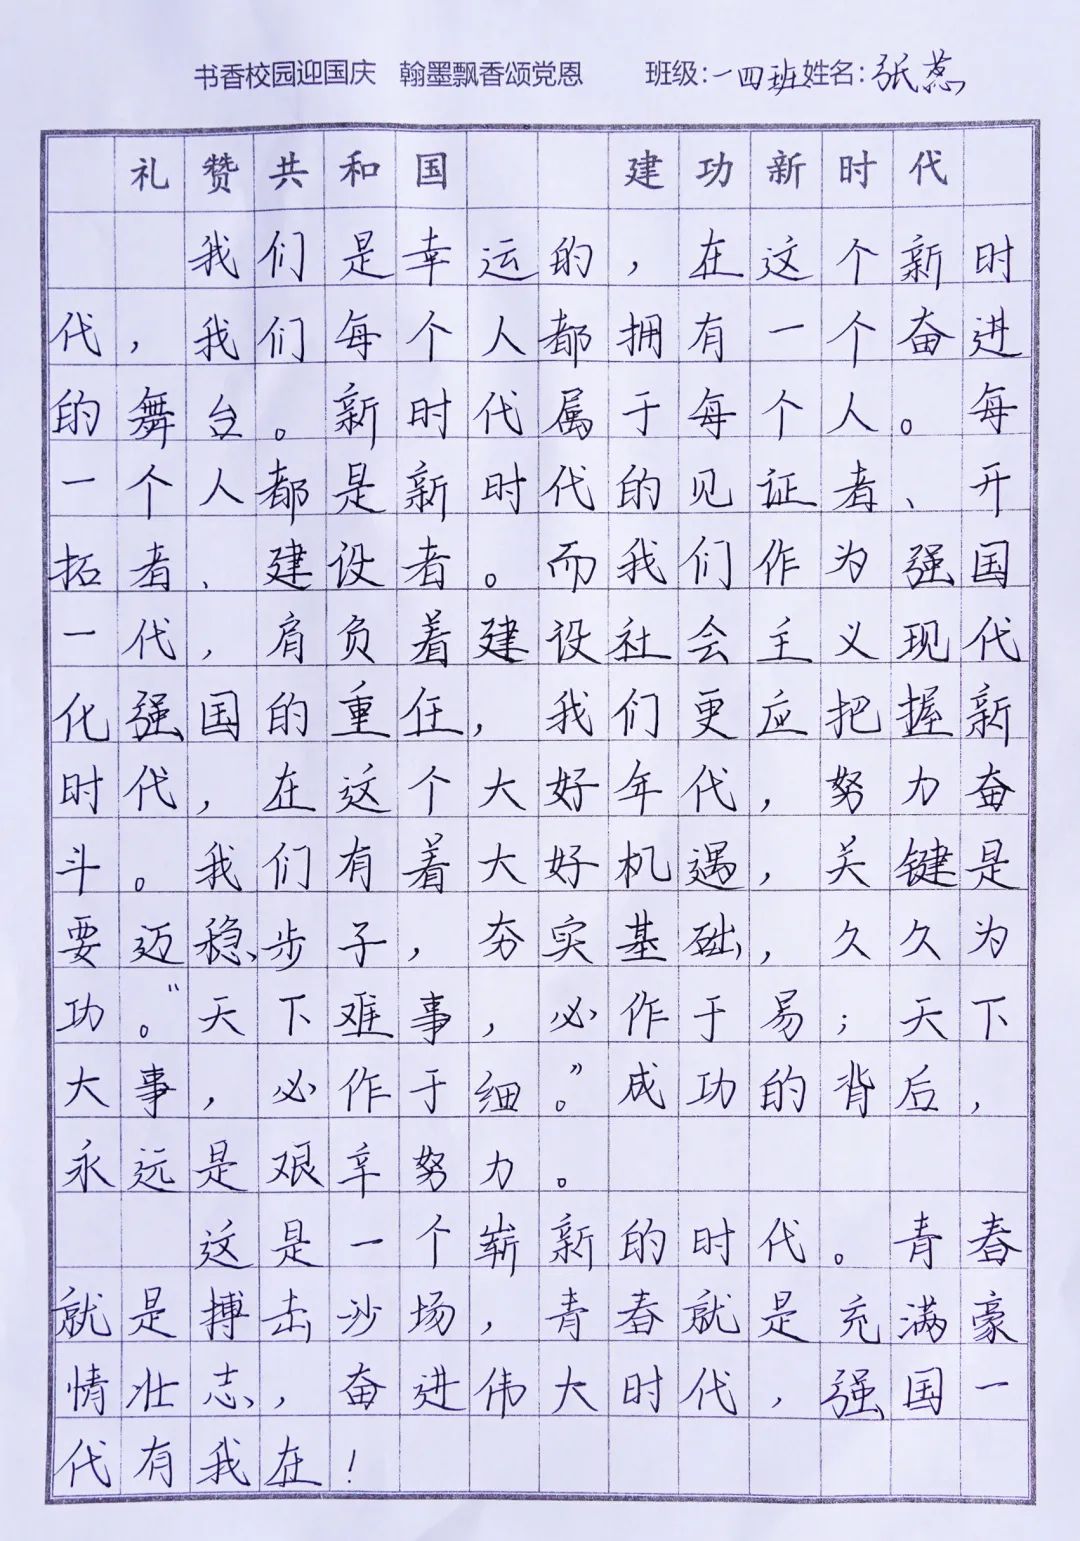 书香校园迎国庆 翰墨飘香颂党恩 班级:一四班姓名:张蕊
礼赞共和国 建功新时代
我们是幸运的,在这个新时
代,我们每个人都拥有一个奋进
的舞台。新时代属于每个人。每
一个人都是新时代的见证者、开
拓者、建设者。而我们作为强国
一代,肩负着建设社会主义现代
化强国的重任,我们更应把握新
时代,在这个大好年代,努力奋
斗。我们有着大好机遇,关键是
要迈稳步子,夯实基础,久久为
功。“天下难事,必作于易;天下
大事,必作于细。”成功的背后,
永远是艰辛努力。
这是一个崭新的时代。青春
就是搏击沙场,青春就是充满豪
情壮志,奋进伟大时代,强国一
代有我在!